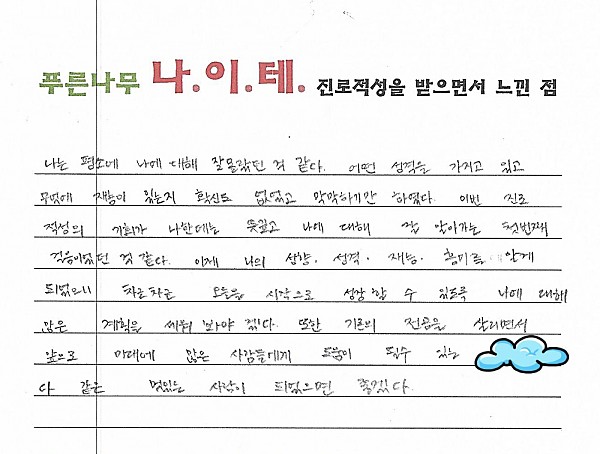 푸른나무 나.이.테. 진로적성을 받으면서 느낀 점
나는 평소에 나에 대해 잘몰랐던 것 같다. 어떤 성격을 가지고 있고
무엇에 재능이 있는지 확신도 없었고 막막하기만 하였다. 이번 진로
적성의 기회가 나한테는 뜻깊고 나에 대해 잘 알아가는 첫번째
걸음이었던 것 같다. 이제 나의 성향, 성격, 재능, 흥미를 알게
되었으니 차근차근 오늘을 시작으로 성장할 수 있도록 나에 대해
많은 계획을 세워 봐야 겠다. 또한 기존의 전공을 살리면서
앞으로 미래에 많은 사람들에게 도움이 될수 있는
다 같은 멋있는 사람이 되었으면 좋겠다.